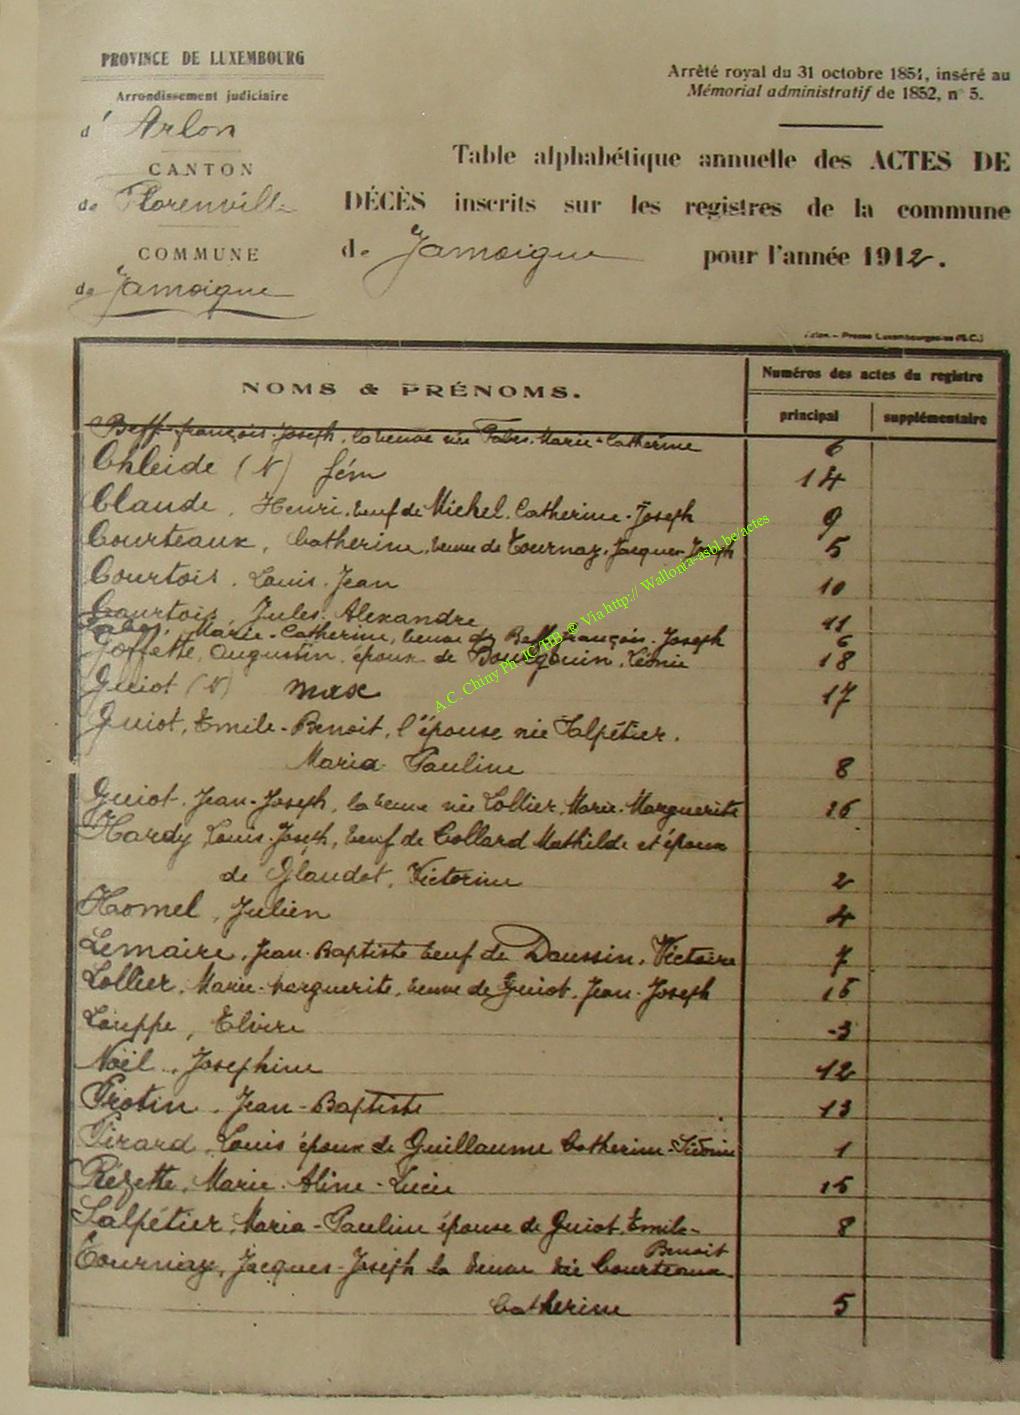 PROVINCE DE LUXEMBOURG
Arrondissement judiciaire
d' Arlon
CANTON
de Florenville
COMMUNE
de Jamoigne
Arrêté royal du 31 octobre 1851, inséré au
Mémorial administratif de 1852, n° 5.
Table alphabétique annuelle des ACTES DE
DÉCÈS inscrits sur les registres de la commune
de Jamoigne pour l'année 1912.
Arlon. – Presse Luxembourgeoise (S.C.)
NOMS & PRÉNOMS.
Numéros des actes du registre
principal supplémentaire
François-Joseph, la veuve née Marie-Catherine 6
Chleide (N) fém 14
Claude, Henri, veuf de Michel, Catherine-Joseph 9
Courteaux, Catherine, veuve de Tournay, Jacques-Joseph 5
Courtois, Louis-Jean 10
Courtois, Jules-Alexandre 11
Marie-Catherine, veuve de François-Joseph 6
Goffette, Augustin, époux de Bourgouin, Léonie 18
Guiot (N) masc 17
Guiot, Emile-Benoit, l'épouse née Salpétier,
Maria-Pauline 8
Guiot, Jean-Joseph, la veuve née Lollier, Marie-Marguerite 16
Hardy, Louis-Joseph, veuf de Collard Mathilde et époux
de Glaudot, Victorine 2
Homel, Julien 4
Lemaire, Jean-Baptiste veuf de Daussin, Victoire 7
Lollier, Marie-Marguerite, veuve de Guiot, Jean-Joseph 16
Louppe, Elvire 3
Noël, Joséphine 12
Jean-Baptiste 13
Pirard, Louis époux de Guillaume Catherine-Sidonie 1
Rézette, Marie-Aline-Lucie 15
Salpétier, Maria-Pauline épouse de Guiot, Emile-
Benoit 8
Tournay, Jacques-Joseph la veuve née Courteaux
Catherine 5
A.C. Chiny Ph. JC/HB ® Via http:// Wallonia-asbl.be/actes